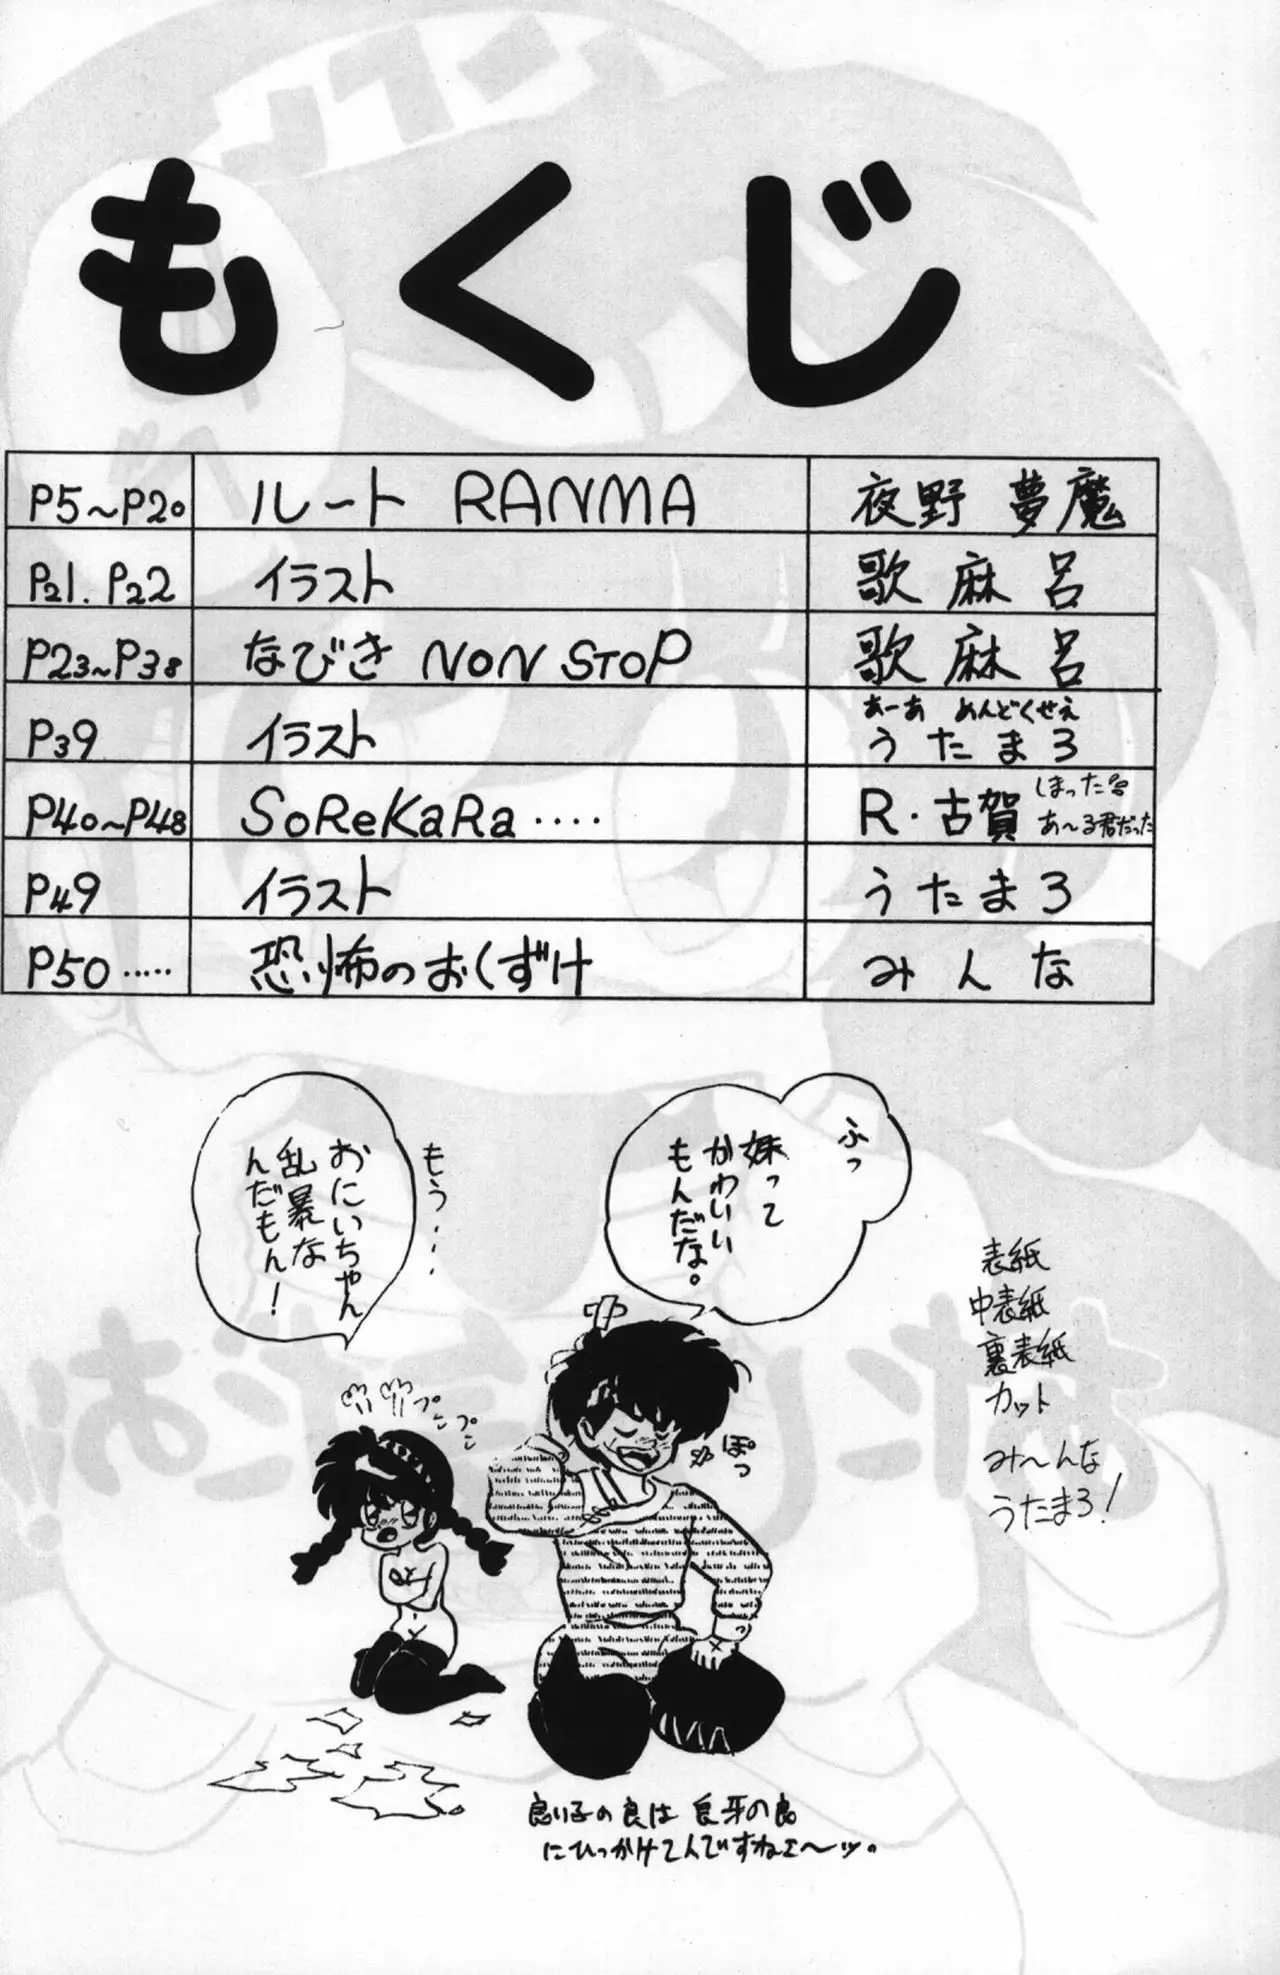 もくじ
P5〜P20 ルート RANMA 夜野 夢魔
P21. P22 イラスト 歌麻呂
P23〜P38 なびき NON STOP 歌麻呂
あーあ めんどくせえ
P39 イラスト うたまろ
P40〜P48 SoReKaRa ‥‥ R・古賀 しまった あ〜る君だった
P49 イラスト うたまろ
P50 ‥‥‥ 恐怖のおくずけ みんな
ふっ
妹って
かわいい
もんだな。
もう‥‥
おにいちゃん
乱暴な
んだもん!
プン
プン
ぽっ
表紙
中表紙
裏表紙
カット
み〜んな
うたまろ!
良い子の良は 良牙の良
にひっかけてんですねェ〜ッ。